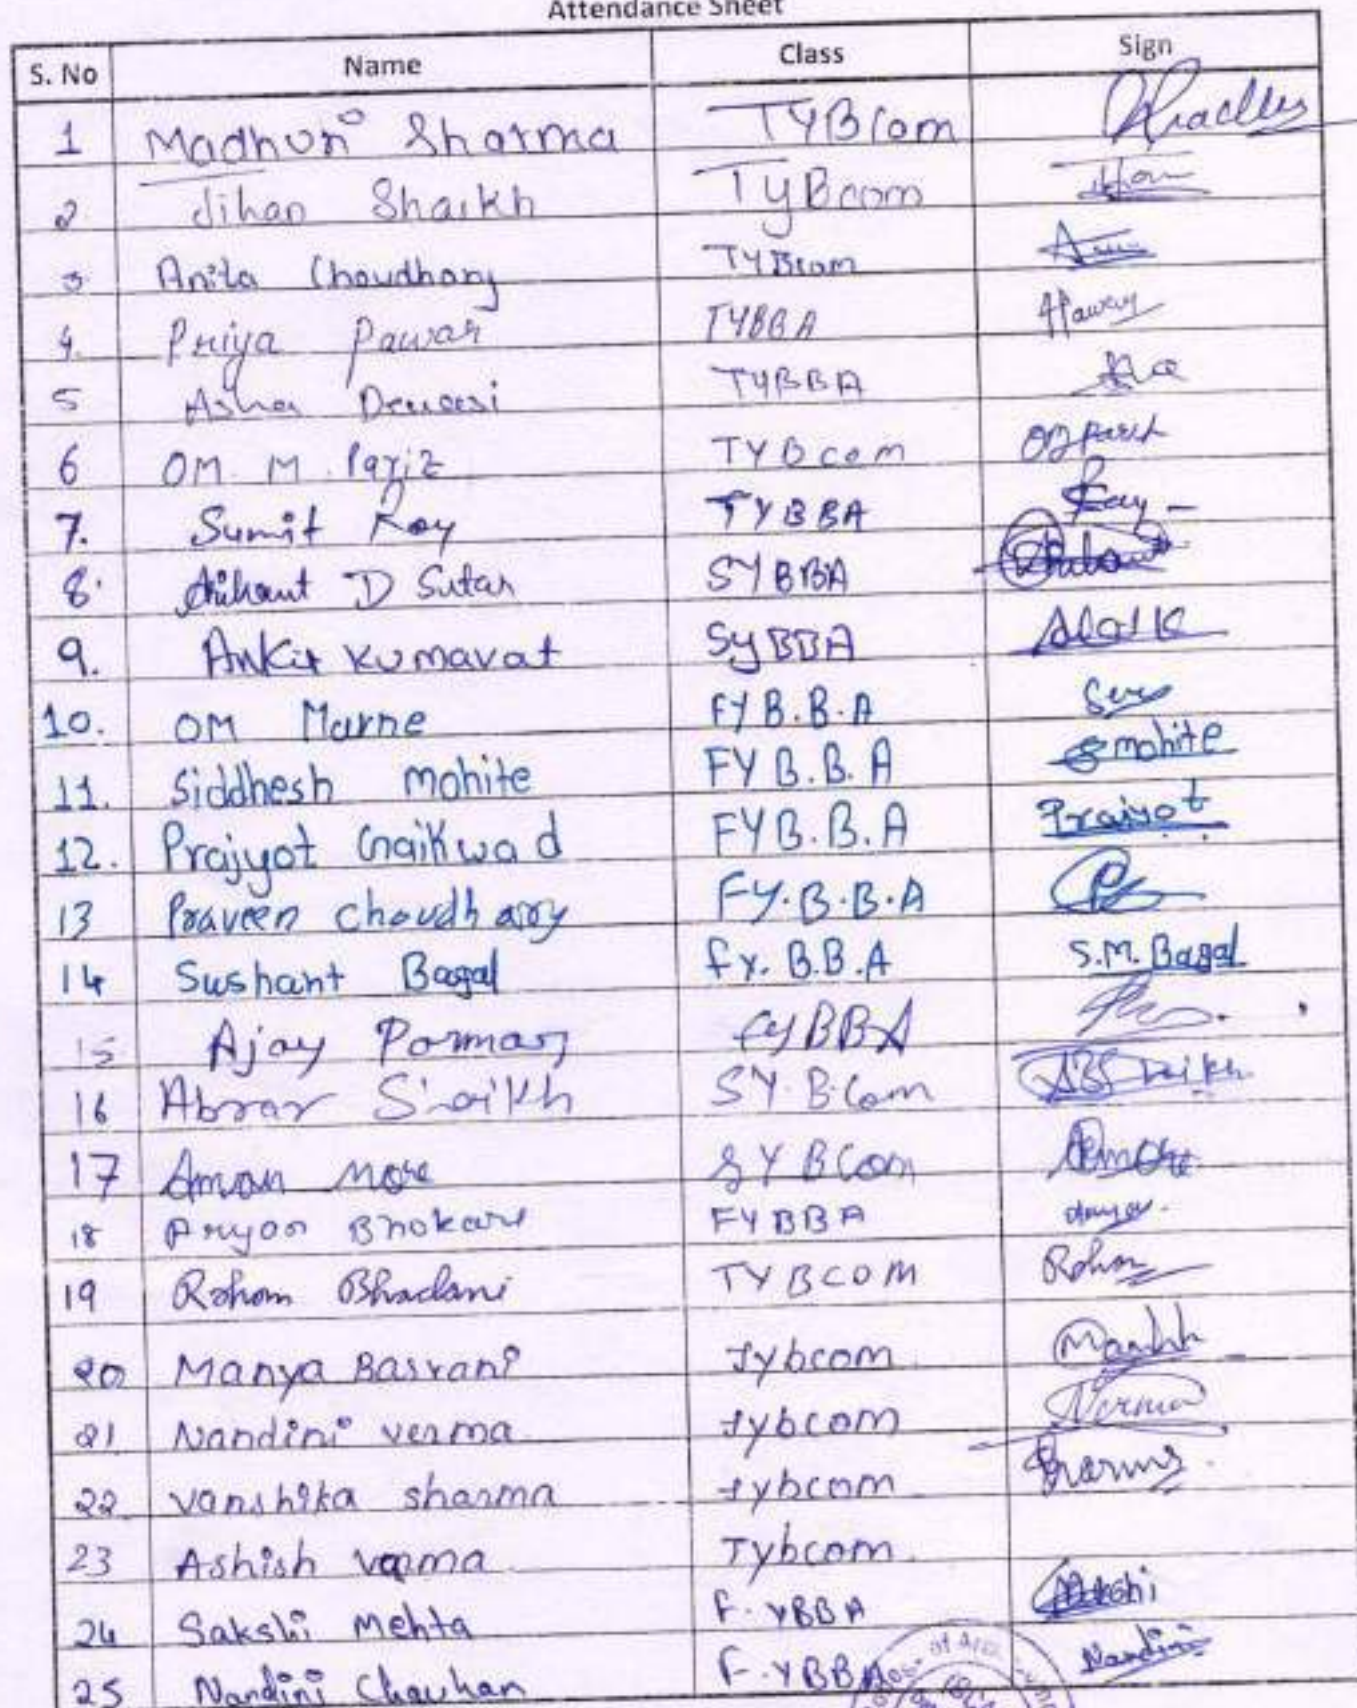 Attendance Sheet
S. No Name Class Sign
1 Madhuri Sharma TYBCom
2 Jihan Shaikh TYBcom
3 Anita Choudhary TYBcom
4. Priya Pawar TYBBA Pawar
5 Asha Dewasi TYBBA
6 OM. M. TYBcom
7. Sumit Roy TYBBA Roy
8. Arihant D Sutar SYBBA
9. Ankit Kumavat SYBBA
10. OM Marne FYB.B.A
11. Siddhesh Mohite FYB.B.A Smohite
12. Prajyot Gaikwad FYB.B.A Prajyot
13 Praveen Choudharry FY.B.B.A
14 Sushant Bagal Fy. B.B.A S.M. Bagal
15 Ajay Parmar FyBBA
16 Abrar Shaikh SY.B.Com ABShaikh
17 Aman More SYBCom
18 Bhokare FYBBA
19 Roham Bhadani TYBCOM Rohan
20 Manya Basrani Tybcom
21 Nandini Verma Tybcom Nerma
22 Vanshika Sharma Tybcom
23 Ashish Verma Tybcom
24 Sakshi Mehta F.YBBA
25 Nandini Chauhan F.YBBA Nandini